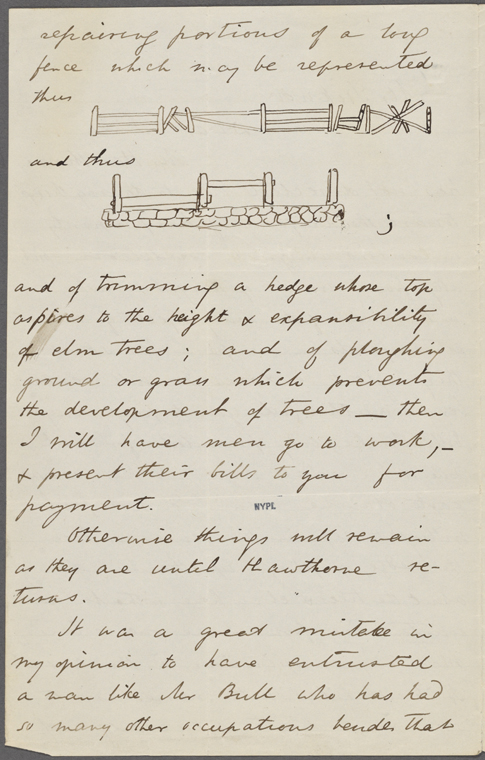 repairing portions of a long
fence which may be represented
thus
and thus
;
and of trimming a hedge whose top
aspires to the height & expansibility
of elm trees; and of ploughing
ground or grass which prevents
the development of trees — then
I will have men go to work, –
& present their bills to you for
payment.
NYPL
Otherwise things will remain
as they are until Hawthorne re-
turns.
It was a great mistake in
my opinion to have entrusted
a man like Mr Bull who has had
so many other occupations besides that